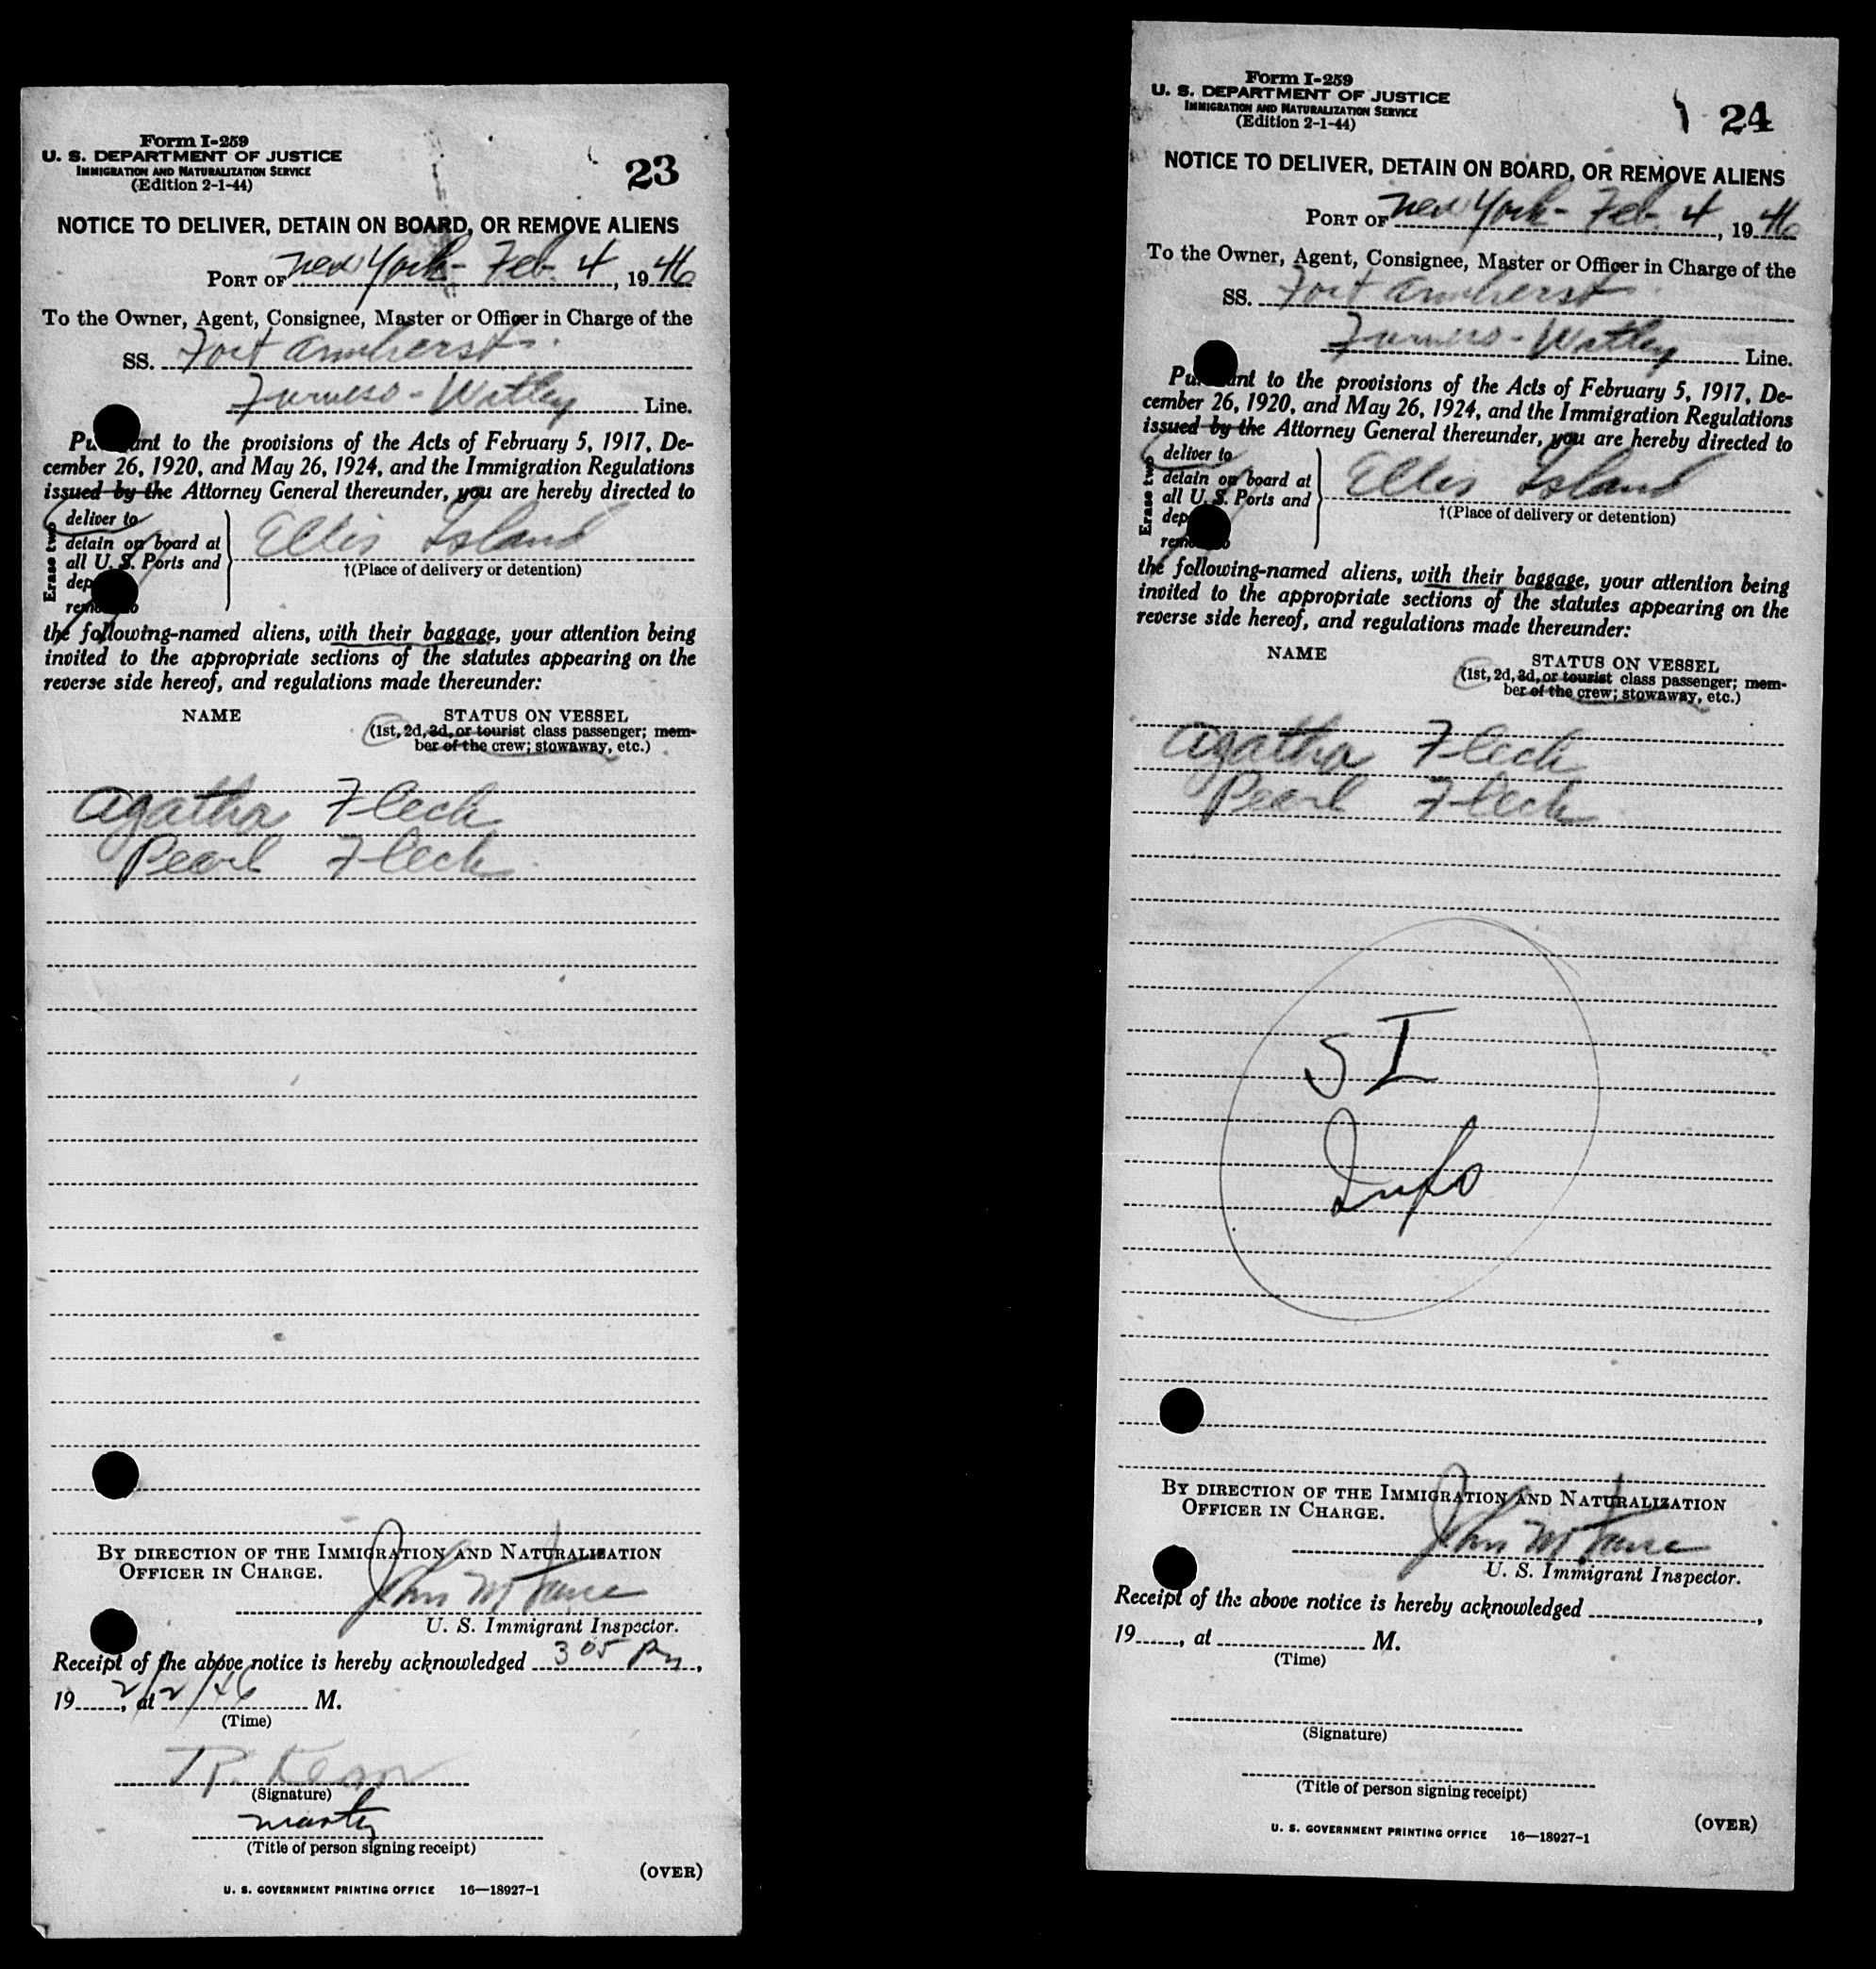 Form I-259
U. S. DEPARTMENT OF JUSTICE
IMMIGRATION AND NATURALIZATION SERVICE
(Edition 2-1-44)
23
NOTICE TO DELIVER, DETAIN ON BOARD, OR REMOVE ALIENS
PORT OF New York - Feb. 4, 1946
To the Owner, Agent, Consignee, Master or Officer in Charge of the
SS. Fort Amherst
Furness - Withy Line.
Pursuant to the provisions of the Acts of February 5, 1917, De-
cember 26, 1920, and May 26, 1924, and the Immigration Regulations
issued by the Attorney General thereunder, you are hereby directed to
Erase two
deliver to
detain on board at
all U. S. Ports and
dep
remo to
Ellis Island
†(Place of delivery or detention)
the following-named aliens, with their baggage, your attention being
invited to the appropriate sections of the statutes appearing on the
reverse side hereof, and regulations made thereunder:
NAME
STATUS ON VESSEL
(1st, 2d, 3d, or tourist class passenger; mem-
ber of the crew; stowaway, etc.)
Agatha Flech
Pearl Flech
BY DIRECTION OF THE IMMIGRATION AND NATURALIZATION
OFFICER IN CHARGE.
John M
U. S. Immigrant Inspector.
Receipt of the above notice is hereby acknowledged 3 05 Pm,
19 , at 2/2/46 M.
(Time)
(Signature)
(Title of person signing receipt)
(OVER)
U. S. GOVERNMENT PRINTING OFFICE 16—18927-1
Form I-259
U. S. DEPARTMENT OF JUSTICE
IMMIGRATION AND NATURALIZATION SERVICE
(Edition 2-1-44)
24
NOTICE TO DELIVER, DETAIN ON BOARD, OR REMOVE ALIENS
PORT OF New York - Feb. 4, 1946
To the Owner, Agent, Consignee, Master or Officer in Charge of the
SS. Fort Amherst
Furness - Withy Line.
Pursuant to the provisions of the Acts of February 5, 1917, De-
cember 26, 1920, and May 26, 1924, and the Immigration Regulations
issued by the Attorney General thereunder, you are hereby directed to
Erase two
deliver to
detain on board at
all U. S. Ports and
dep
remo to
Ellis Island
†(Place of delivery or detention)
the following-named aliens, with their baggage, your attention being
invited to the appropriate sections of the statutes appearing on the
reverse side hereof, and regulations made thereunder:
NAME
STATUS ON VESSEL
(1st, 2d, 3d, or tourist class passenger; mem-
ber of the crew; stowaway, etc.)
Agatha Flech
Pearl Flech
S I
Info
BY DIRECTION OF THE IMMIGRATION AND NATURALIZATION
OFFICER IN CHARGE.
John M
U. S. Immigrant Inspector.
Receipt of the above notice is hereby acknowledged ,
19 , at M.
(Time)
(Signature)
(Title of person signing receipt)
(OVER)
U. S. GOVERNMENT PRINTING OFFICE 16—18927-1